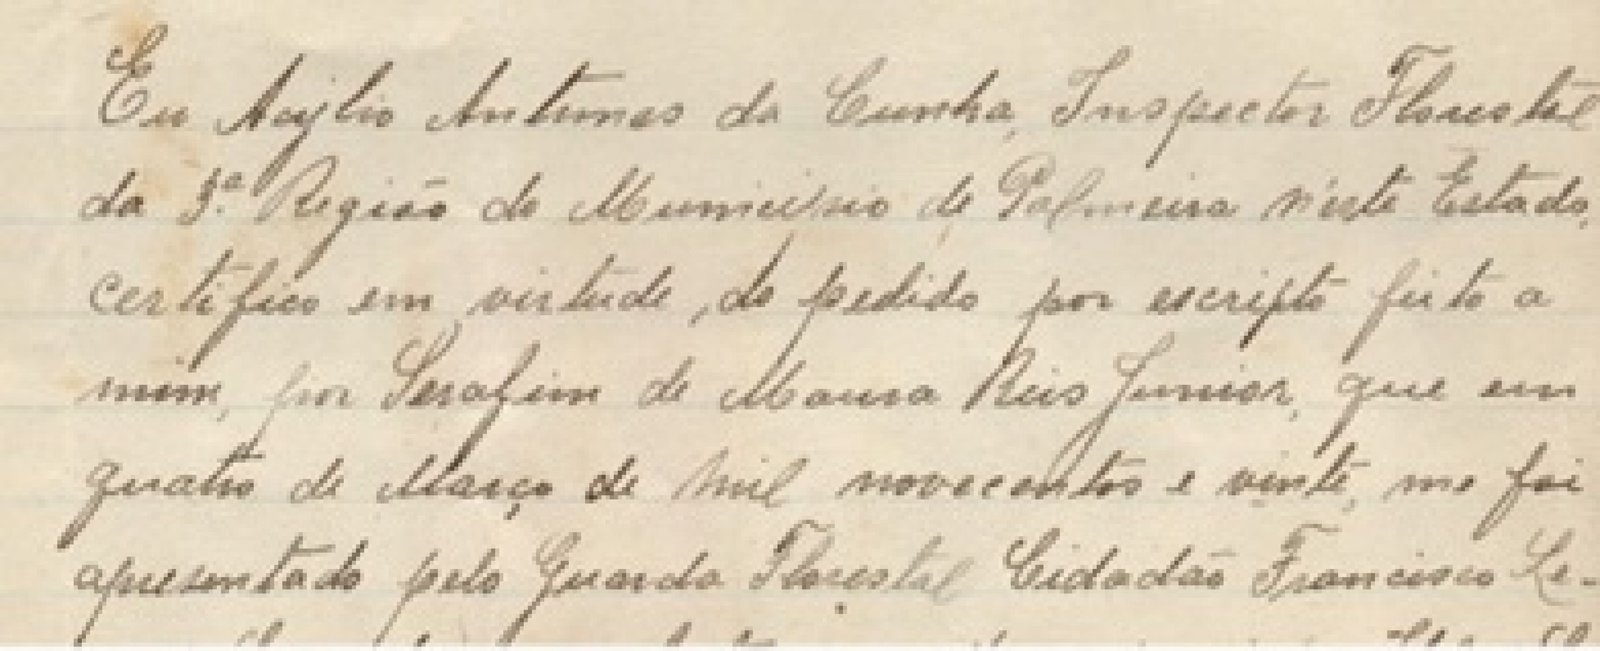 Eu Acylio Antunes da Cunha, Inspector Florestal
da 3ª Região do Municipio de Palmeira n'este Estado,
certifico em virtude, do pedido por escripto feito a
mim, por Serafim de Moura Reis Junior, que em
quatro de Março de mil novecentos e vinte, me foi
apresentado pelo Guarda Florestal Cidadão Francisco Le-